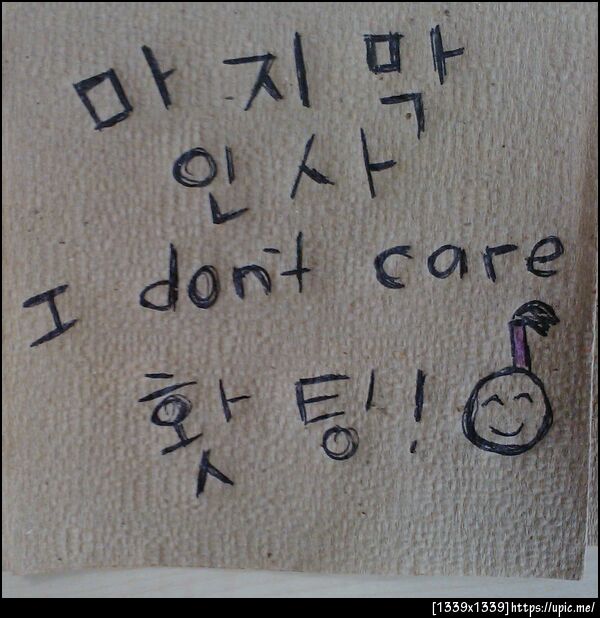 마지막
인사
I don't care
홧팅!
[1339x1339]https://upic.me/